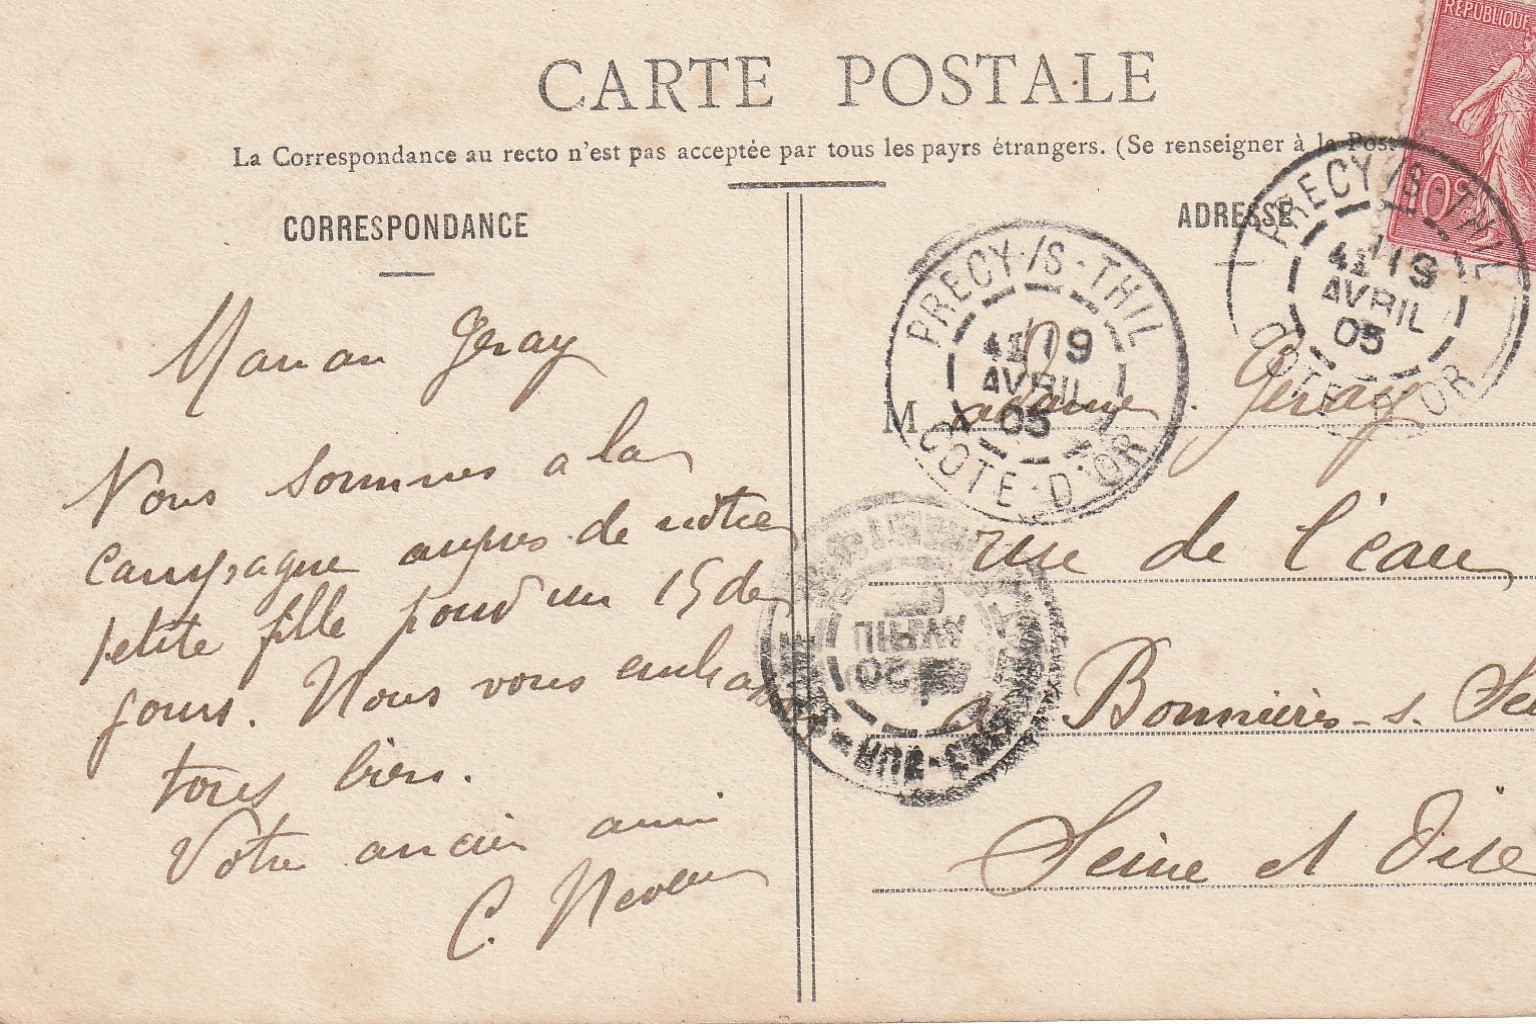 CARTE POSTALE
La Correspondance au recto n'est pas acceptée par tous les payrs étrangers. (Se renseigner à la Post
CORRESPONDANCE
Geray
Nous sommes a la
campagne aupres de notre
petite fille pour un 15 de
jours. Nous vous embrassons
tous bien.
Votre ancien ami
C.
ADRESSE
Madame Geray
rue de l'eau
a Bonnières-s. Se
Seine et Oise
REPUBLIQUE
10
PRECY-/S-THIL
19
AVRIL
05
COTE-D'OR
PRECY-/S-THIL
19
AVRIL
05
COTE-D'OR
AVRIL
20
-SUR-S